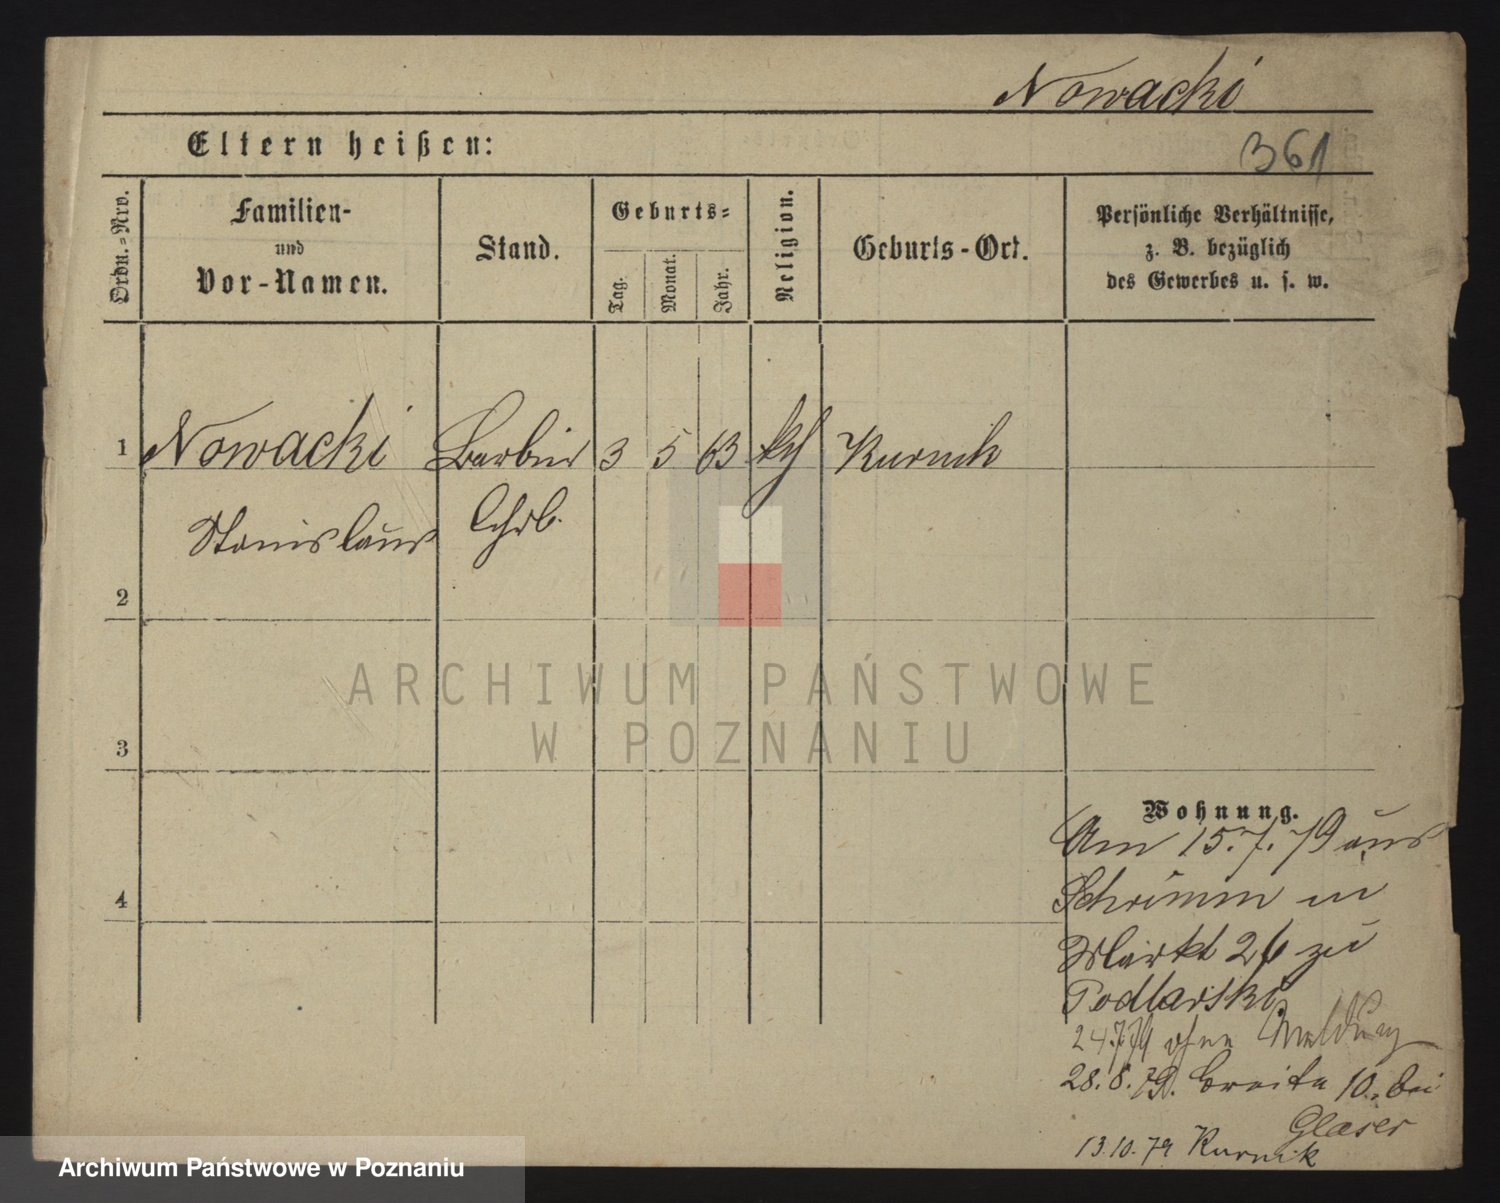 Nowacki
Eltern heißen:
361
Ordn.=Nro.
Familien-
und
Vor-Namen.
Stand.
Geburts=
Tag.
Monat.
Jahr.
Religion.
Geburts-Ort.
Persönliche Verhältnisse,
z. B. bezüglich
des Gewerbes u. s. w.
1 Nowacki Barbier 3 5 63 kth Kurnik
Stanislaus Gehb.
2
3
4
ARCHIWUM PAŃSTWOWE
W POZNANIU
Wohnung.
Am 15.7.79 aus
Schrimm in
Markt 26 zu
Podlarski
24.7.79 ohne Meldung
28.8.79. Breite 10. bei
Glaser
13.10.79 Kurnik
Archiwum Państwowe w Poznaniu